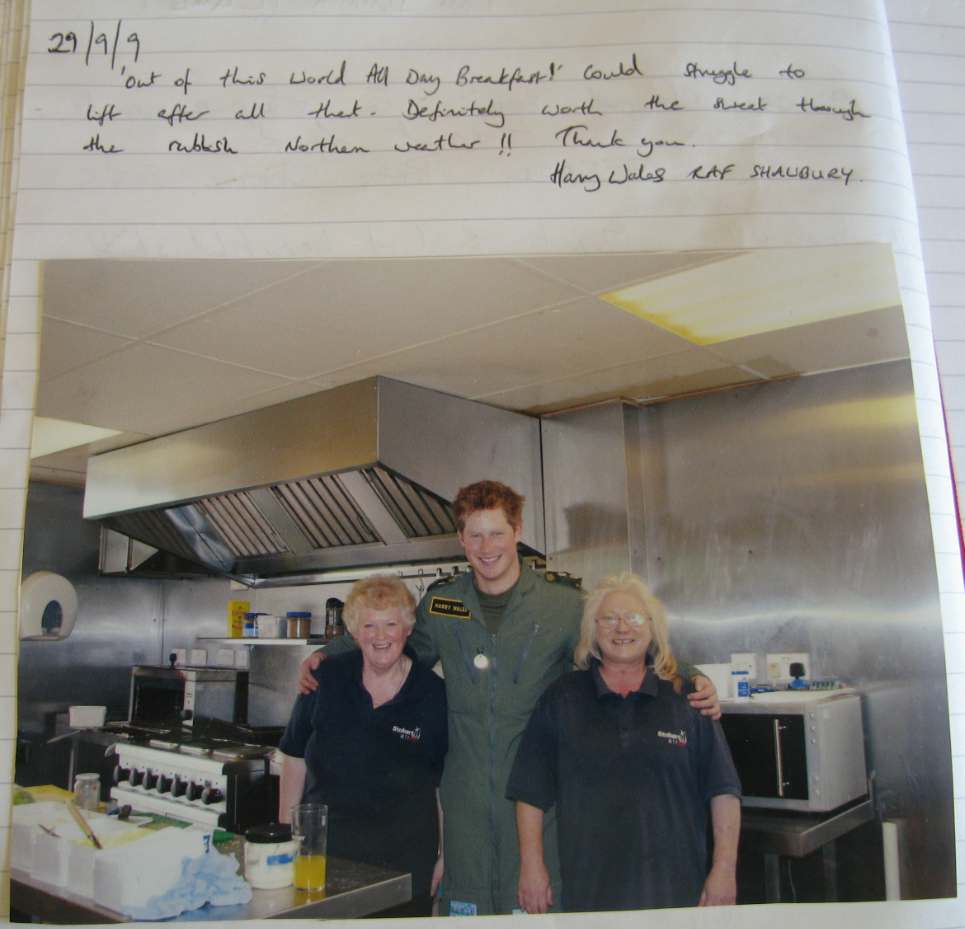 29/9/9
'Out of this World All Day Breakfast!' Could struggle to
lift after all that. Definitely worth the sweat through
the rubbish Northern weather!! Thank you.
Harry Wales RAF SHAWBURY.
HARRY WALES
Stobart
Air
Stobart
Air